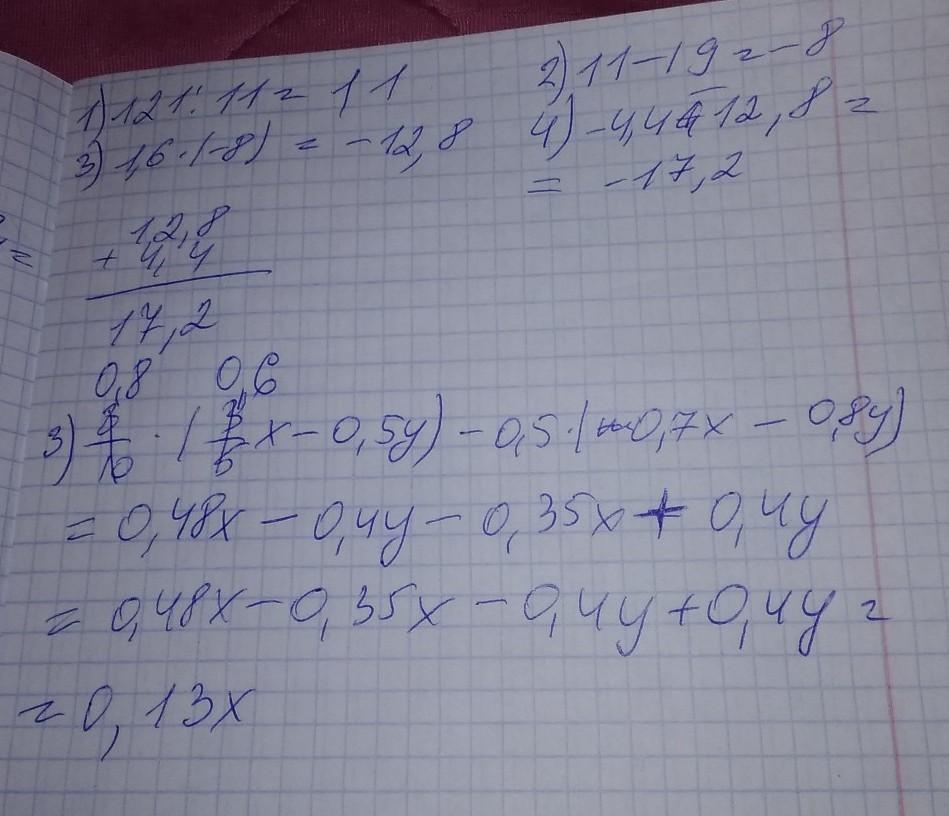 1) 121 : 11 = 11
2) 11 - 19 = -8
3) 1,6 · (-8) = -12,8
4) -4,4 - 12,8 =
= -17,2
12,8
+ 4,4
17,2
0,8 0,6
3) 8/10 · (3/5 x - 0,5y) - 0,5 · (0,7x - 0,8y)
= 0,48x - 0,4y - 0,35x + 0,4y
= 0,48x - 0,35x - 0,4y + 0,4y =
= 0,13x